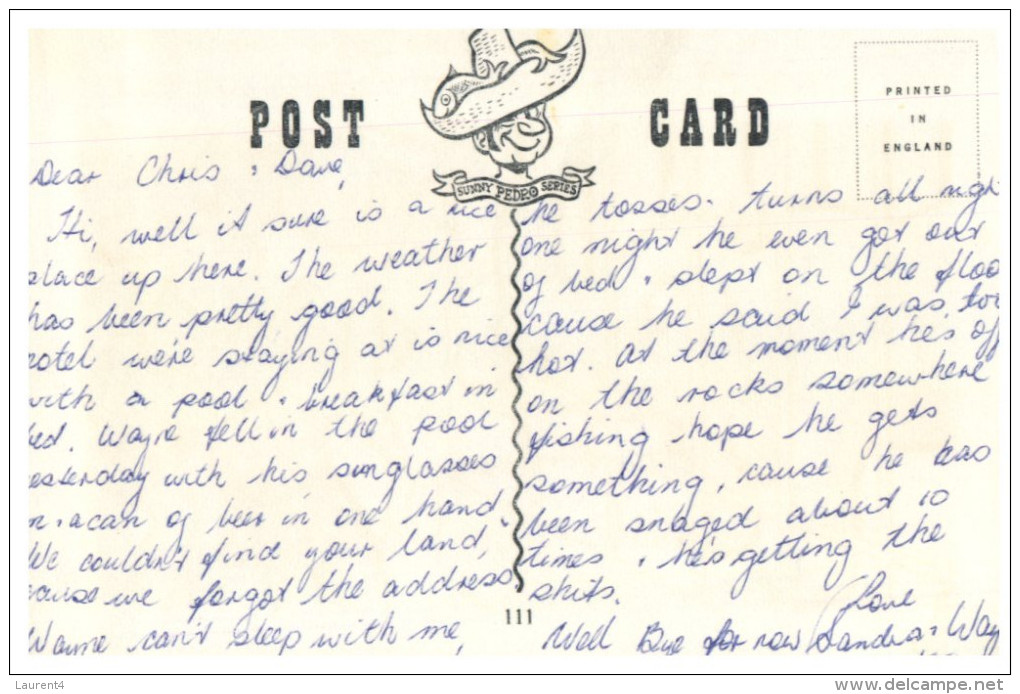 POST CARD
PRINTED
IN
ENGLAND
SUNNY PEDRO SERIES
Dear Chris & Dave,
Hi, well it sure is a nice
place up here. The weather
has been pretty good. The
hotel we're staying at is nice
with a pool & breakfast in
bed. Wayne fell in the pool
yesterday with his sunglasses
on & a can of beer in one hand.
We couldn't find your land,
cause we forgot the address.
Wayne can't sleep with me,
he tosses & turns all nigh
one night he even got out
of bed & slept on the floo
cause he said I was too
hot. At the moment he's off
on the rocks somewhere
fishing hope he gets
something, cause he has
been snaged about 10
times & he's getting the
shits.
Well Bye for now
Love
Sandra & Way
111
Laurent4
delcampe.net